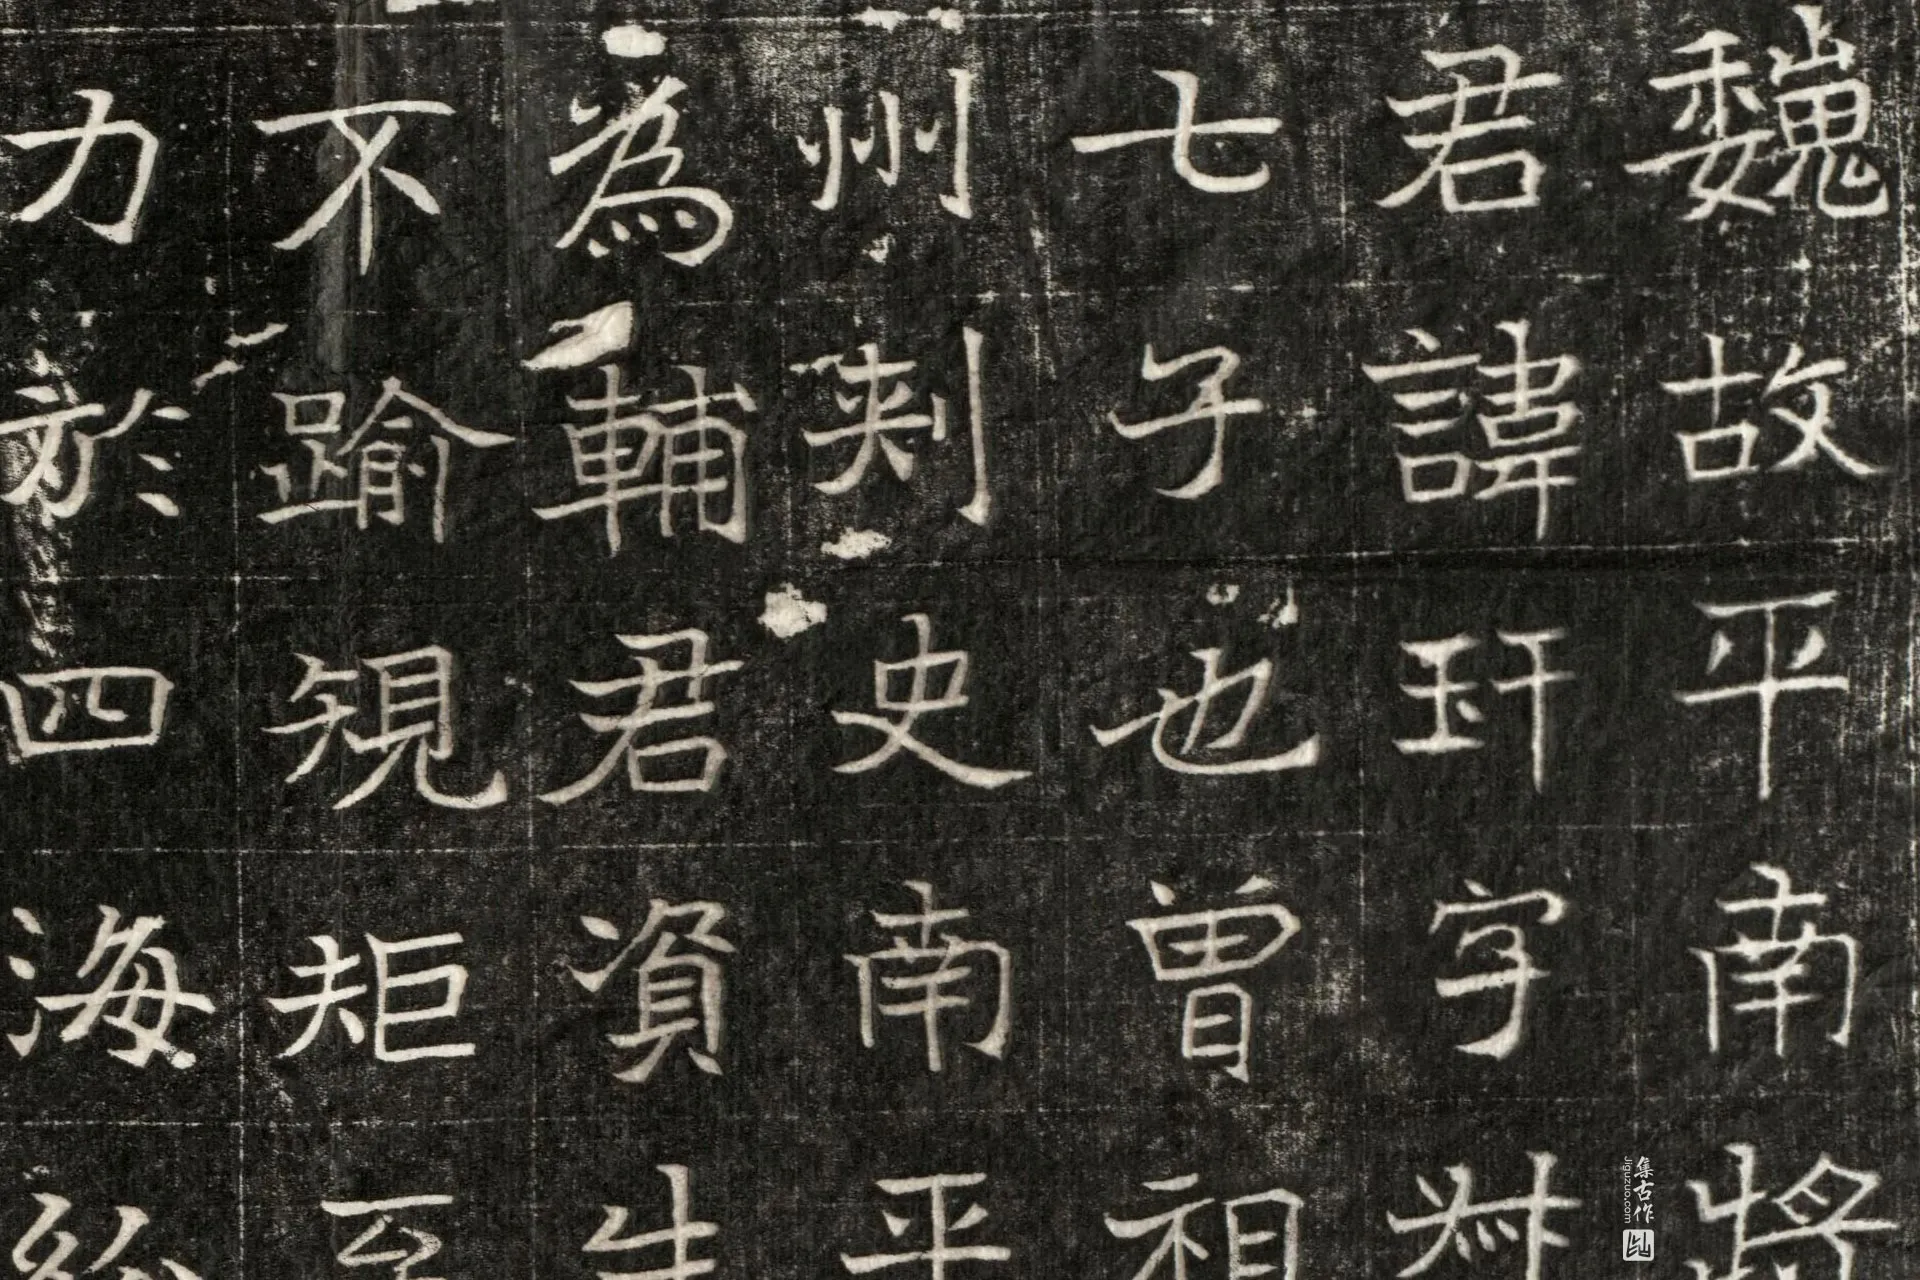 魏故平南將
君諱玕字叔
七子也曾祖
州刺史南平
為輔君資生
不踰規矩至
力於四海
集古作
Jiguzuo.com